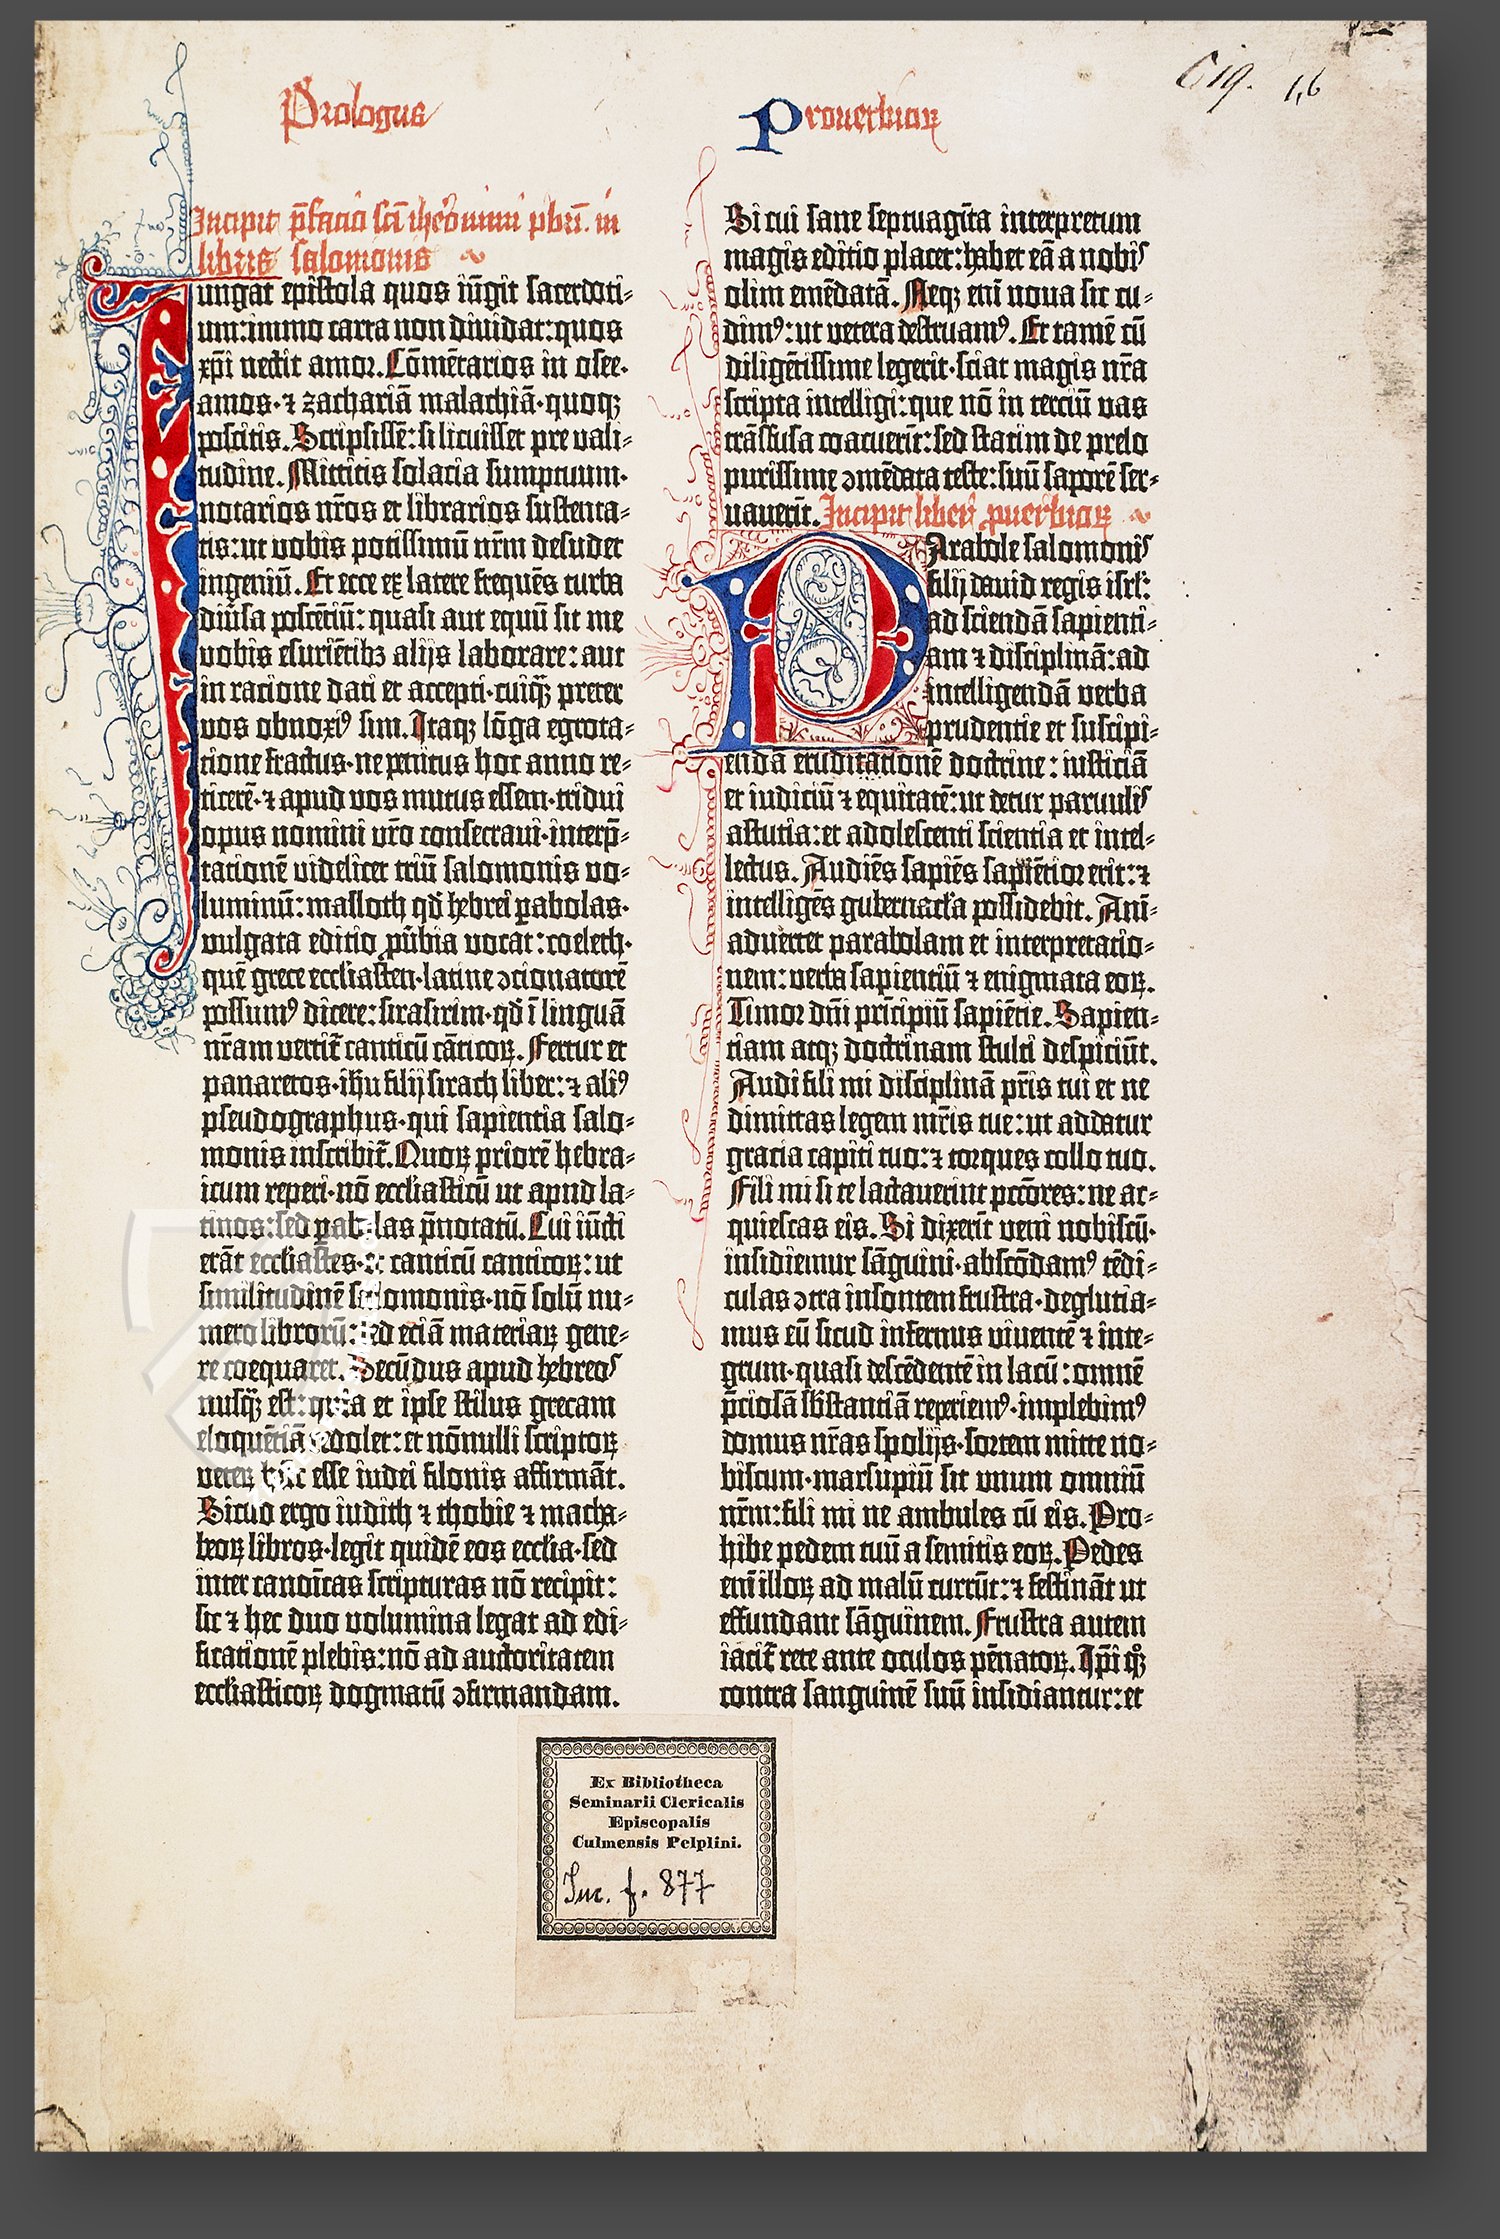 Prologus
Proverbiorꝝ
Cig. 1,6
Incipit p̄facio sct̄i iheronimi pbr̄i. in
libris salomonis
Iungat epistola quos iūgit sacerdoti⸗
um:immo carta non dividat:quos
xp̄i nectit amor. Cōmētarios in osee·
amos· ⁊ zachariā malachiā·quoqꝫ
poscitis. Scripsissē: si licuisset pre vali⸗
tudine. Mittitis solacia sumptuum·
notarios nr̄os et librarios sustenta⸗
tis: ut vobis potissimū nr̄m desudet
ingeniū. Et ecce ex latere frequēs turba
diūsa poscētiū: quasi aut equū sit me
vobis esuriētibꝫ alijs laborare: aut
in racione dati et accepti·cuiq̄ꝫ preter
vos obnoxiꝰ sim. Itaqꝫ lōga egrota⸗
tione fractus·ne penitus hoc anno re⸗
ticerē· ⁊ apud vos mutus essem·tridui
opus nomini vr̄o consecravi·interp̄⸗
tationē videlicet triū salomonis vo⸗
luminū: masloth qd̄ hebrei ꝑabolas·
vulgata editio ꝓūbia vocat: coeleth·
quē grece eccl̄iasten·latine ↄcionatorē
possumꝰ dicere: sirasirim·qd̄ ī linguā
nr̄am vertit̄ canticū cāticoꝝ. Fertur et
panaretos·ih̄u filij sirach liber: ⁊ aliꝰ
pseudographus·qui sapientia salo⸗
monis inscribit̄. Quoꝝ priorē hebra⸗
icum reperi·nō eccl̄iasticū ut apud la⸗
tinos: sed ꝑabolas p̄notatū. Cui iūcti
erāt eccl̄iastes·et canticū canticoꝝ: ut
similitudinē salomonis·nō solū nu⸗
mero librorū: sed eciā materiaꝝ gene⸗
re coequaret. Secūdus apud hebreos
nusq̄ꝫ est: quia et ipse stilus grecam
eloquētiā redolet: et nōnulli scriptoꝝ
veteꝝ hūc esse iudei filonis affirmāt.
Sicud ergo iudith ⁊ thobie ⁊ macha⸗
beoꝝ libros·legit quidē eos eccl̄ia·sed
inter canoīcas scripturas nō recipit:
sic ⁊ hec duo volumina legat ad edi⸗
ficationē plebis: nō ad auctoritatem
eccl̄iasticoꝝ dogmatū ↄfirmandam.
Si cui sane septuagīta interpretum
magis editio placet: habet eā a nobis
olim emēdatā. Neqꝫ enī nova sic cu⸗
dimꝰ: ut vetera destruamꝰ. Et tamē cū
diligētissime legerit·sciat magis nr̄a
scripta intelligi: que nō in terciū vas
trāsfusa coacuerīt: sed statim de prelo
purissime ↄmēdata teste: suū saporē ser⸗
vaverīt. Incipit liber ꝓuerbioꝝ
Parabole salomonis
filij david regis isrl̄:
ad sciendā sapienti⸗
am ⁊ disciplinā: ad
intelligendā verba
prudentie et suscipi⸗
enda eruditationē doctrine: iusticiā
et iudiciū ⁊ equitatē: ut detur parvulis
astutia: et adolescenti scientia et intel⸗
lectus. Audiēs sapiēs sapiētior erit: ⁊
intelligēs gubernacl̄a possidebit. Anī⸗
advertet parabolam et interpretatio⸗
nem: verba sapientiū ⁊ enigmata eoꝝ.
Timor dn̄i prīcipiū sapiētie. Sapien⸗
tiam atqꝫ doctrinam stulti despiciūt.
Audi fili mi disciplinā pr̄is tui et ne
dimittas legem mr̄is tue: ut addatur
gracia capiti tuo: ⁊ torques collo tuo.
Fili mi si te lactaverint pctōres: ne ac⸗
quiescas eis. Si dixerīt veni nobiscū·
insidiemur sāguini·abscōdamꝰ tēdi⸗
culas ↄtra insontem frustra·deglutia⸗
mus eū sicud infernus viventē ⁊ inte⸗
grum·quasi descēdentē in lacū: omnē
p̄ciosā sb̄stantiā reperiemꝰ·implebimꝰ
domus nr̄as spolijs·sortem mitte no⸗
biscum·marsupiū sit unum omniū
nr̄m: fili mi ne ambules cū eis. Pro⸗
hibe pedem tuū a semitis eoꝝ. Pedes
enī illoꝝ ad malū currūt: ⁊ festināt ut
effundant sāguinem. Frustra autem
iacit̄ rete ante oculos pēnatoꝝ. Ip̄i qͦꝫ
contra sanguinē suū insidiantur: et
Ex Bibliotheca
Seminarii Clericalis
Episcopalis
Culmensis Pelplini.
Inc. f. 877